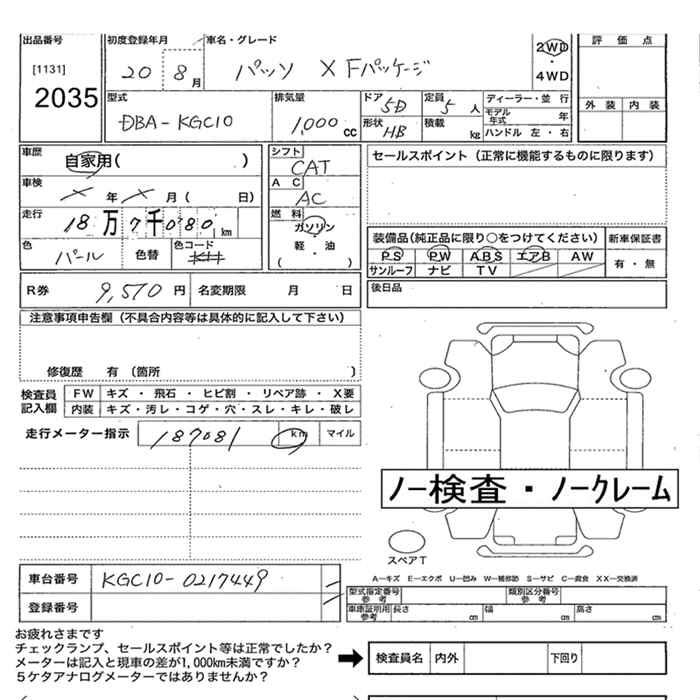 出品番号 初度登録年月 車名・グレード 評価点
[1131]
2035
20 8月 パッソ X Fパッケージ 2WD・4WD
型式 排気量 ドア 5D 定員 5人 ディーラー・並行 外装 内装
DBA-KGC10 1,000cc 形状 HB 積載 kg モデル年式 年
ハンドル 左・右
車歴 自家用( )
シフト CAT
セールスポイント（正常に機能するものに限ります）
車検 年 月( 日)
AC AC
走行 18万7千080km
燃料 ガソリン 軽・油 ( )
色 パール 色替 色コード
装備品(純正品に限り○をつけてください) 新車保証書
PS PW ABS エアB AW 有・無
サンルーフ ナビ TV
R券 9,570円 名変期限 月 日
後日品
注意事項申告欄（不具合内容等は具体的に記入して下さい）
修復歴 有（箇所 ）
検査員記入欄 FW キズ・飛石・ヒビ割・リペア跡・X要
内装 キズ・汚レ・コゲ・穴・スレ・キレ・破レ
走行メーター指示 187081 km マイル
ノー検査・ノークレーム
スペアT
A-キズ E-エクボ U-凹み W-補修跡 S-サビ C-腐食 XX-交換済
車台番号 KGC10-0217449
登録番号
型式指定番号参考 類別区分番号参考
車庫証明用参考 長さ cm 幅 cm 高さ cm
お疲れさまです
チェックランプ、セールスポイント等は正常でしたか？
メーターは記入と現車の差が1,000km未満ですか？
5ケタアナログメーターではありませんか？
検査員名 内外 下回り